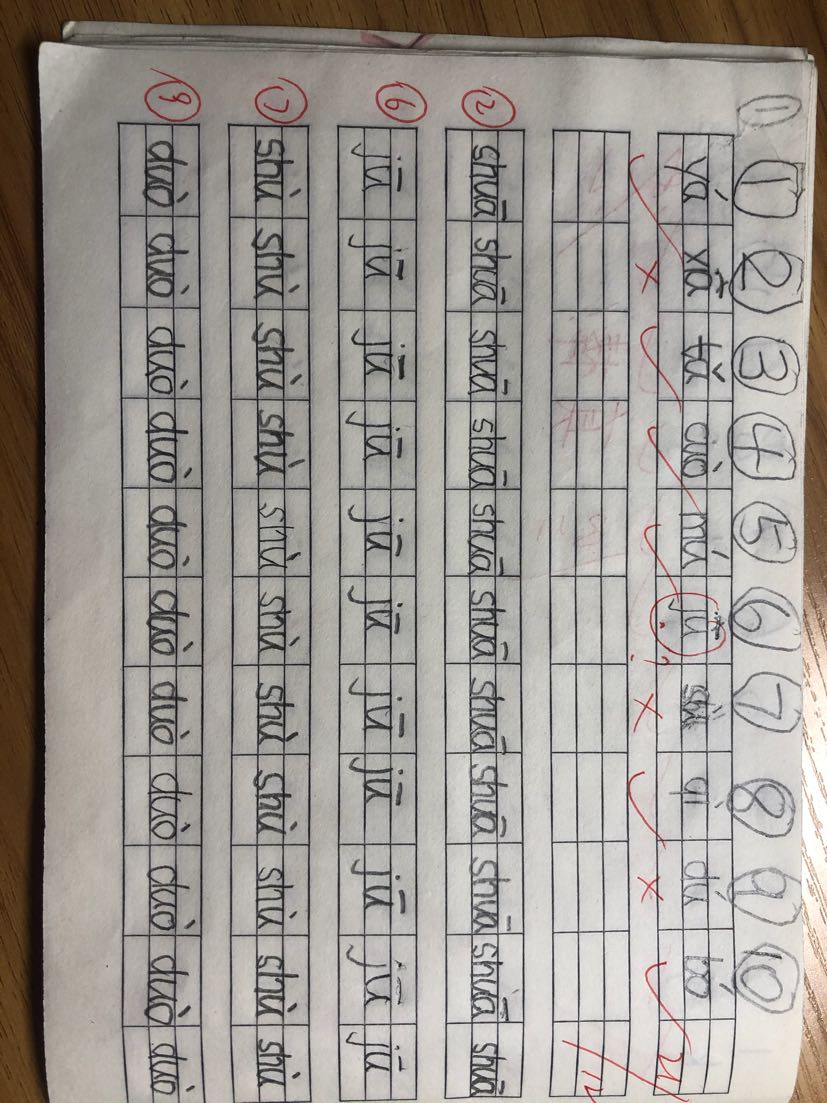 ① ① ② ③ ④ ⑤ ⑥ ⑦ ⑧ ⑨ ⑩
yá mú jū qí dú bó
② shuā shuā shuā shuā shuā shuā shuā shuā shuā shuā shuā
⑥ jū jū jū jū jū jū jū jū jū jū jū
⑦ shù shù shù shù shù shù shù shù shù shù shù
⑨ duò duò duò duò duò duò duò duò duò duò duò